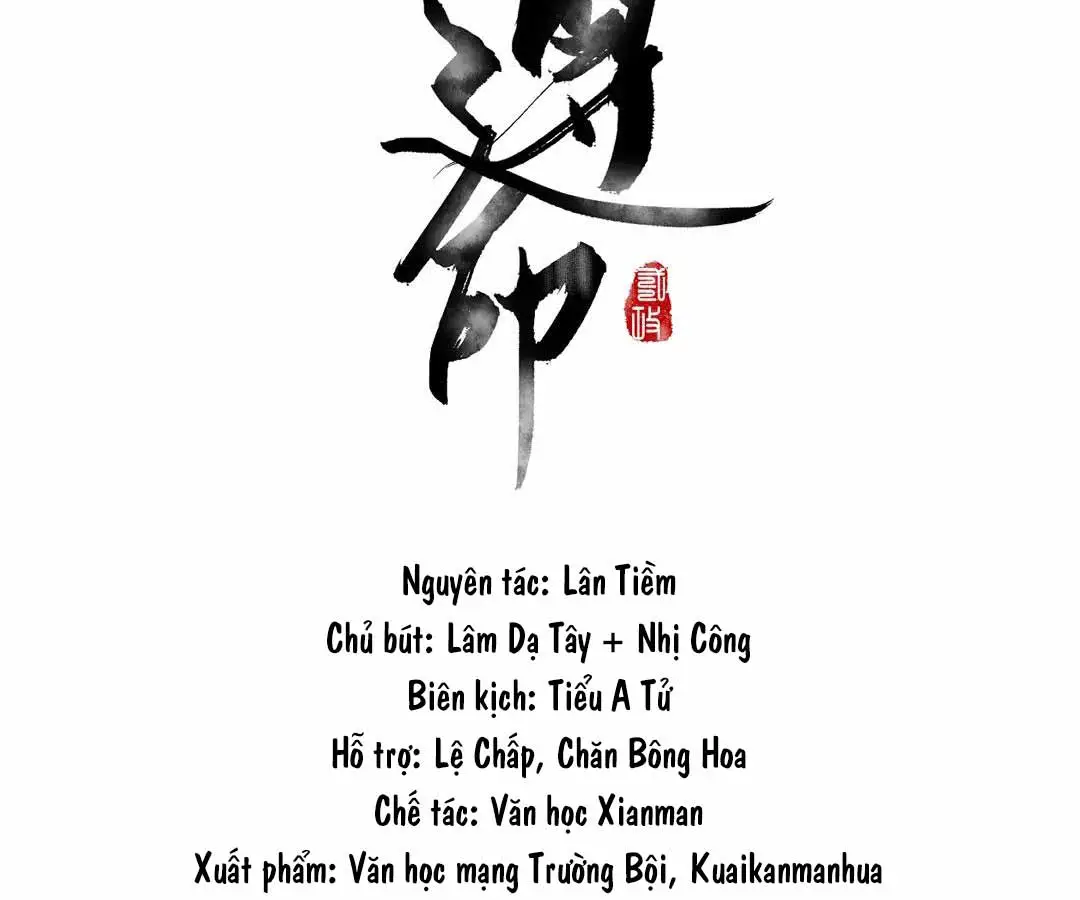 印
Nguyên tác: Lân Tiềm
Chủ bút: Lâm Dạ Tây + Nhị Công
Biên kịch: Tiểu A Tử
Hỗ trợ: Lệ Chấp, Chăn Bông Hoa
Chế tác: Văn học Xianman
Xuất phẩm: Văn học mạng Trường Bội, Kuaikanmanhua